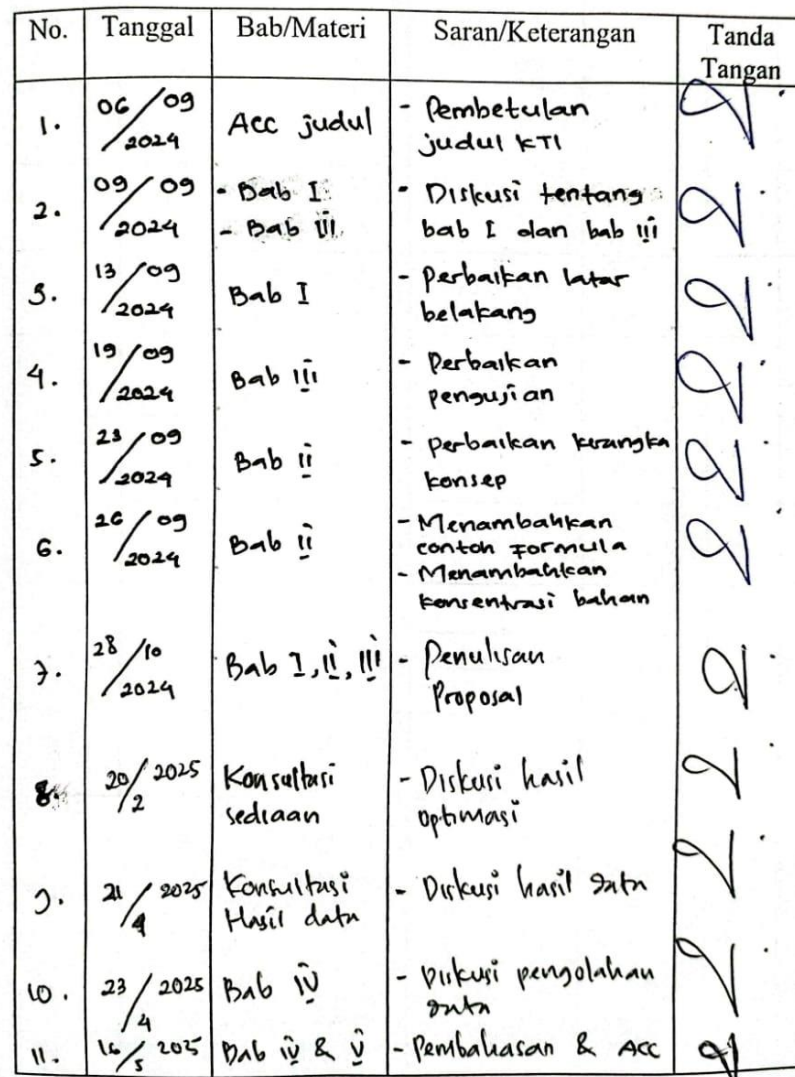 No. Tanggal Bab/Materi Saran/Keterangan Tanda
Tangan
1. 06/09 Acc judul - Pembetulan
/2024 judul KTI
2. 09/09 - Bab I - Diskusi tentang
/2024 - Bab III bab I dan bab III
3. 13/09 Bab I - Perbaikan latar
/2024 belakang
4. 19/09 Bab III - Perbaikan
/2024 pengujian
5. 23/09 Bab II - perbaikan kerangka
/2024 konsep
6. 26/09 Bab II - Menambahkan
/2024 contoh Formula
- Menambahkan
konsentrasi bahan
7. 28/10 Bab I, II, III - Penulisan
/2024 Proposal
8. 20/2 2025 Konsultasi - Diskusi hasil
sediaan optimasi
9. 21/4 2025 Konsultasi - Diskusi hasil data
Hasil data
10. 23/4 2025 Bab IV - Diskusi pengolahan
data
11. 16/5 2025 Bab IV & V - Pembahasan & Acc